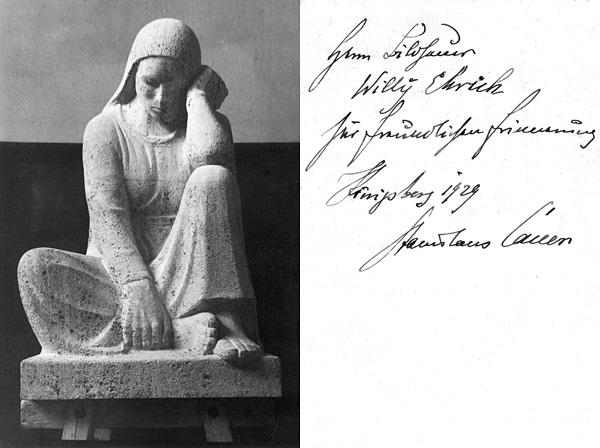 Herrn Bildhauer
Willy Ehrich
zur freundlichen Erinnerung
Königsberg 1929
Stanislaus Cauer